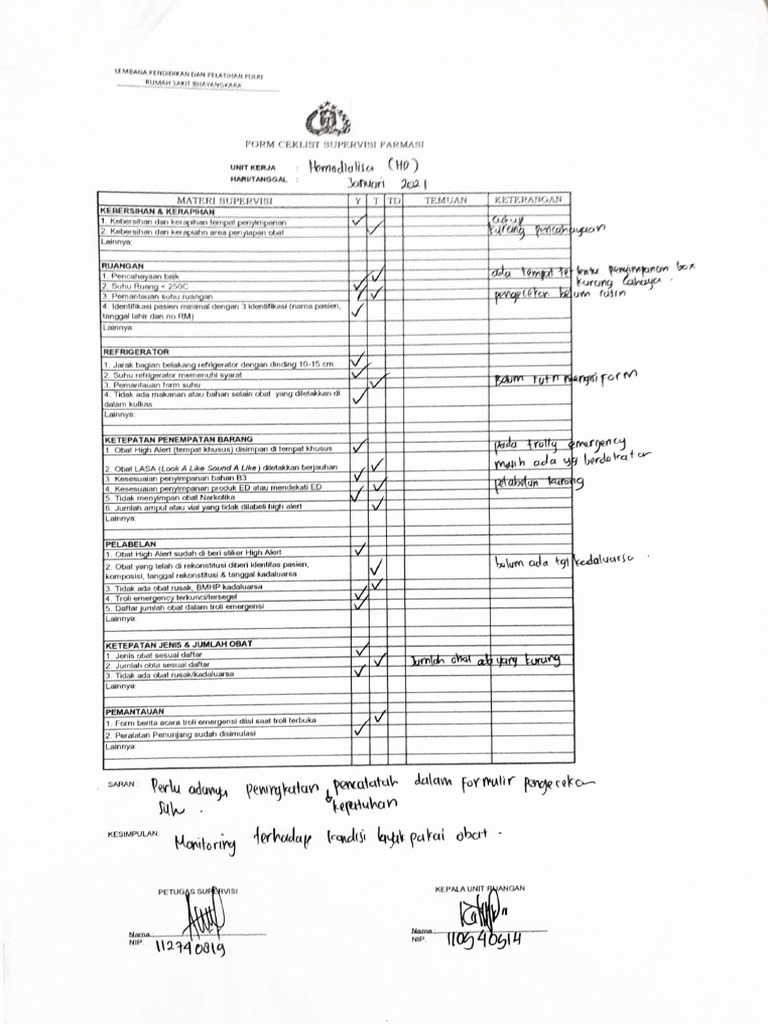 LEMBAGA PENDIDIKAN DAN PELATIHAN POLRI
RUMAH SAKIT BHAYANGKARA
FORM CEKLIST SUPERVISI FARMASI
UNIT KERJA : Hemodialisa (HD)
HARI/TANGGAL : Januari 2021
MATERI SUPERVISI Y T TD TEMUAN KETERANGAN
KEBERSIHAN & KERAPIHAN
1. Kebersihan dan kerapihan tempat penyimpanan ✓ cukup
2. Kebersihan dan kerapiahn area penyiapan obat ✓ kurang pencahayaan
Lainnya:
RUANGAN
1. Pencahayaan baik ✓ ada tempat tertentu penyimpanan box kurang cahaya
2. Suhu Ruang < 250C ✓
3. Pemantauan suhu ruangan ✓ ✓ pengecekan belum rutin
4. Identifikasi pasien minimal dengan 3 identifikasi (nama pasien,
tanggal lahir dan no.RM) ✓
Lainnya:
REFRIGERATOR
1. Jarak bagian belakang refrigerator dengan dinding 10-15 cm ✓
2. Suhu refrigerator memenuhi syarat ✓
3. Pemantauan form suhu ✓ Belum rutin mengisi form
4. Tidak ada makanan atau bahan selain obat yang diletakkan di
dalam kulkas ✓
Lainnya:
KETEPATAN PENEMPATAN BARANG
1. Obat High Alert (tempat khusus) disimpan di tempat khusus ✓ pada trolly emergency
2. Obat LASA (Look A Like Sound A Like) diletakkan berjauhan ✓ masih ada yg berdekatan
3. Kesesuaian penyimpanan bahan B3 ✓
4. Kesesuaian penyimpanan produk ED atau mendekati ED ✓ pelabelan kurang
5. Tidak menyimpan obat Narkotika ✓
6. Jumlah ampul atau vial yang tidak dilabeli high alert ✓
Lainnya:
PELABELAN
1. Obat High Alert sudah di beri stiker High Alert ✓
2. Obat yang telah di rekonstitusi diberi identitas pasien,
komposisi, tanggal rekonstitusi & tanggal kadaluarsa ✓ belum ada tgl kedaluarsa .
3. Tidak ada obat rusak, BMHP kadaluarsa ✓
4. Troli emergency terkunci/tersegel ✓
5. Daftar jumlah obat dalam troli emergensi ✓
Lainnya:
KETEPATAN JENIS & JUMLAH OBAT
1. Jenis obat sesuai daftar ✓
2. Jumlah obta sesuai daftar ✓ Jumlah obat ada yang kurang
3. Tidak ada obat rusak/kadaluarsa ✓
Lainnya:
PEMANTAUAN
1. Form berita acara troli emergensi diisi saat troli terbuka ✓
2. Peralatan Penunjang sudah disimulasi ✓
Lainnya:
SARAN: Perlu adanya peningkatan pencatatan dalam formulir pengecekan
suhu . & kepatuhan
KESIMPULAN: Monitoring terhadap kondisi layak pakai obat .
PETUGAS SUPERVISI KEPALA UNIT RUANGAN
Nama : Nama :
NIP. 112740819 NIP. 110540514